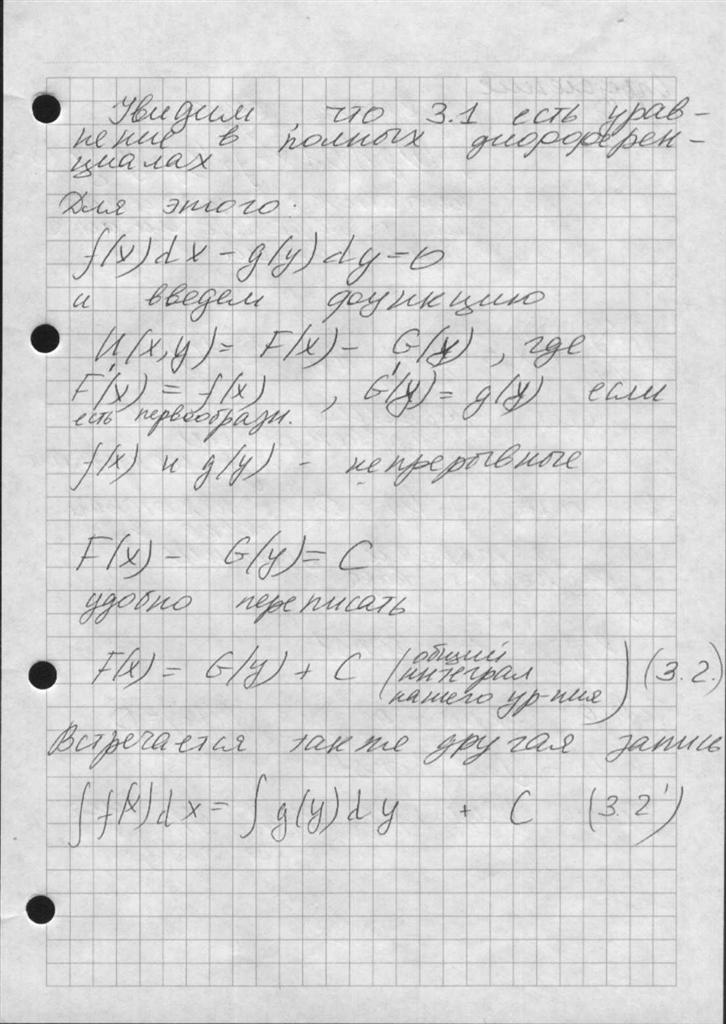 Увидим, что 3.1 есть урав-
нение в полных дифферен-
циалах
Для этого.
f(x)dx - g(y)dy = 0
и введем функцию
U(x,y) = F(x) - G(y), где
F'(x) = f(x), G'(y) = g(y) если
есть первообразн.
f(x) и g(y) - непрерывные
F(x) - G(y) = C
удобно переписать
F(x) = G(y) + C (общий
интеграл
нашего ур-ния) (3.2.)
Встречается также другая запись
∫f(x)dx = ∫g(y)dy + C (3.2')